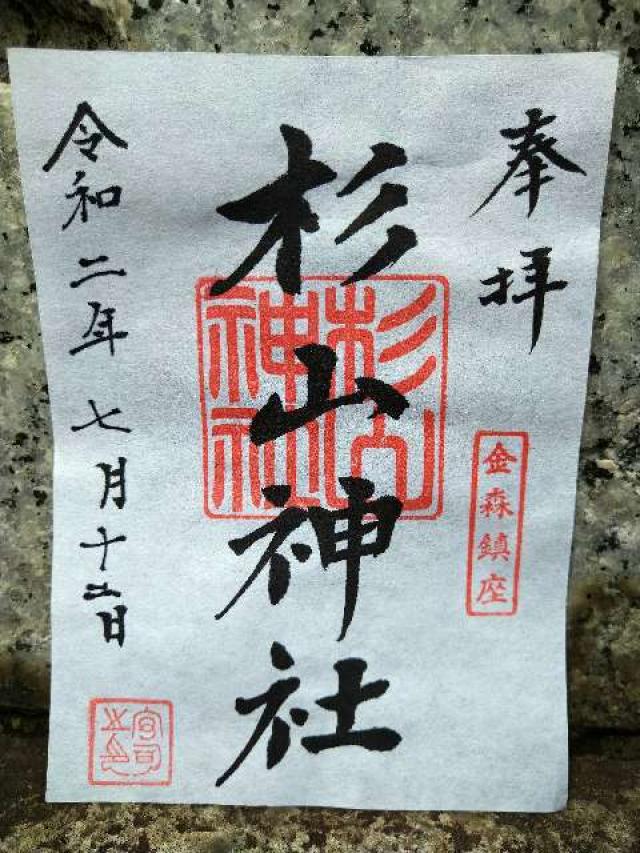 奉拝
金森鎮座
杉山神社
杉山神社
令和二年七月十二日
宮司之印